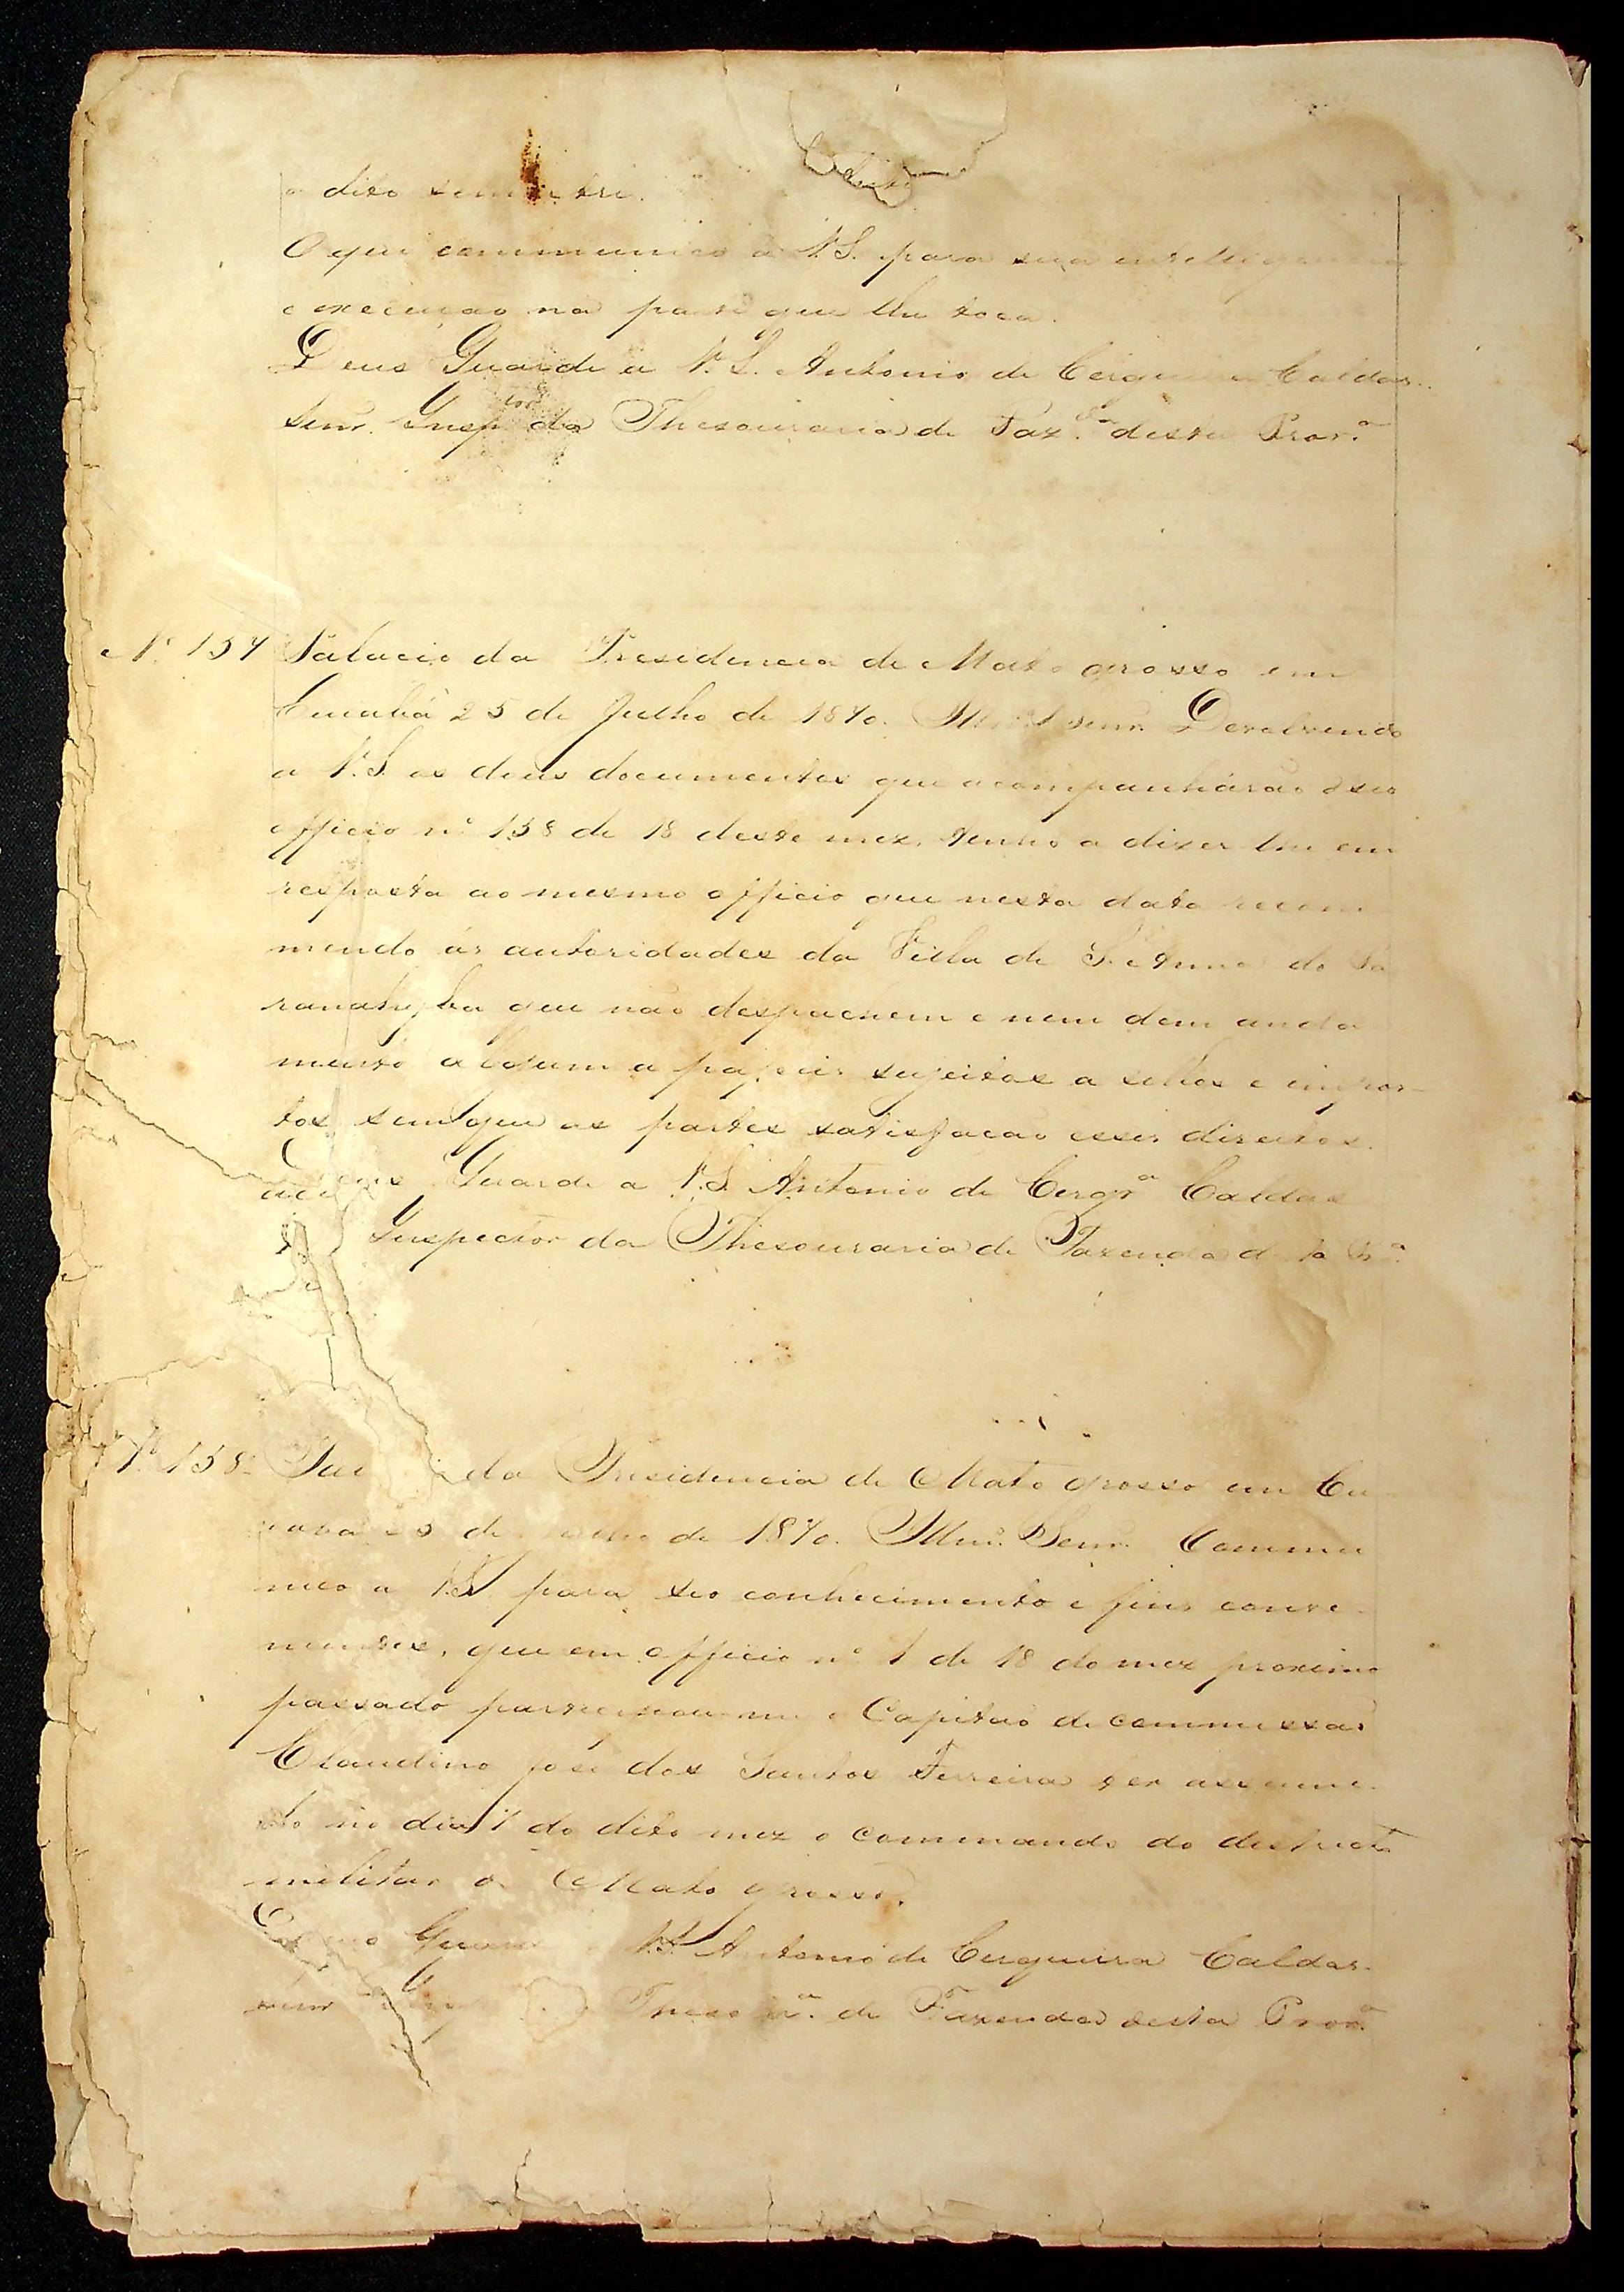 o dito semestre.
O que communico a V.S. para sua intelligencia
e execução na parte que lhe toca.
Deus Guarde a V.S. Antonio de Cerqueira Caldas.
Senr. Insp.tor da Thesouraria de Faz.da desta Prov.a
N.º 157 Palacio da Presidencia de Mato grosso em
Cuiabá 25 de Julho de 1870. Illmo. Senr. Devolvendo
a V.S. os deus documentos que acompanhárão o seo
officio nº 158 de 18 deste mez, tenho a dizer lhe em
resposta ao mesmo officio que nesta data recom
mendo ás autoridades da Villa de S. Anna do Pa
ranahyba que não despachem e nem dem anda
mento algum a papeis sujeitos a sellos e impos-
tos sem que as partes satisfação esses direitos.
Deus Guarde a V.S. Antonio de Cerqr.a Caldas
Inspector da Thesouraria de Fazenda desta Pr.a
N.º 158 da Presidencia de Mato grosso em Cu
de 1870. Illmo. Senr. Commu
nico a V.S. para seo conhecimento e fins conve-
nientes, que em officio nº 1 de 18 do mez proximo
passado participou-me o Capitão de commissão
Claudino José dos Santos Ferreira ter assumi-
do no dia 1 do dito mez o commando do districto
militar de Mato grosso.
Deus Guarde a V.S. Antonio de Cerqueira Caldas.
Senr. Insp Thesou r.a de Fazenda desta Prov.a